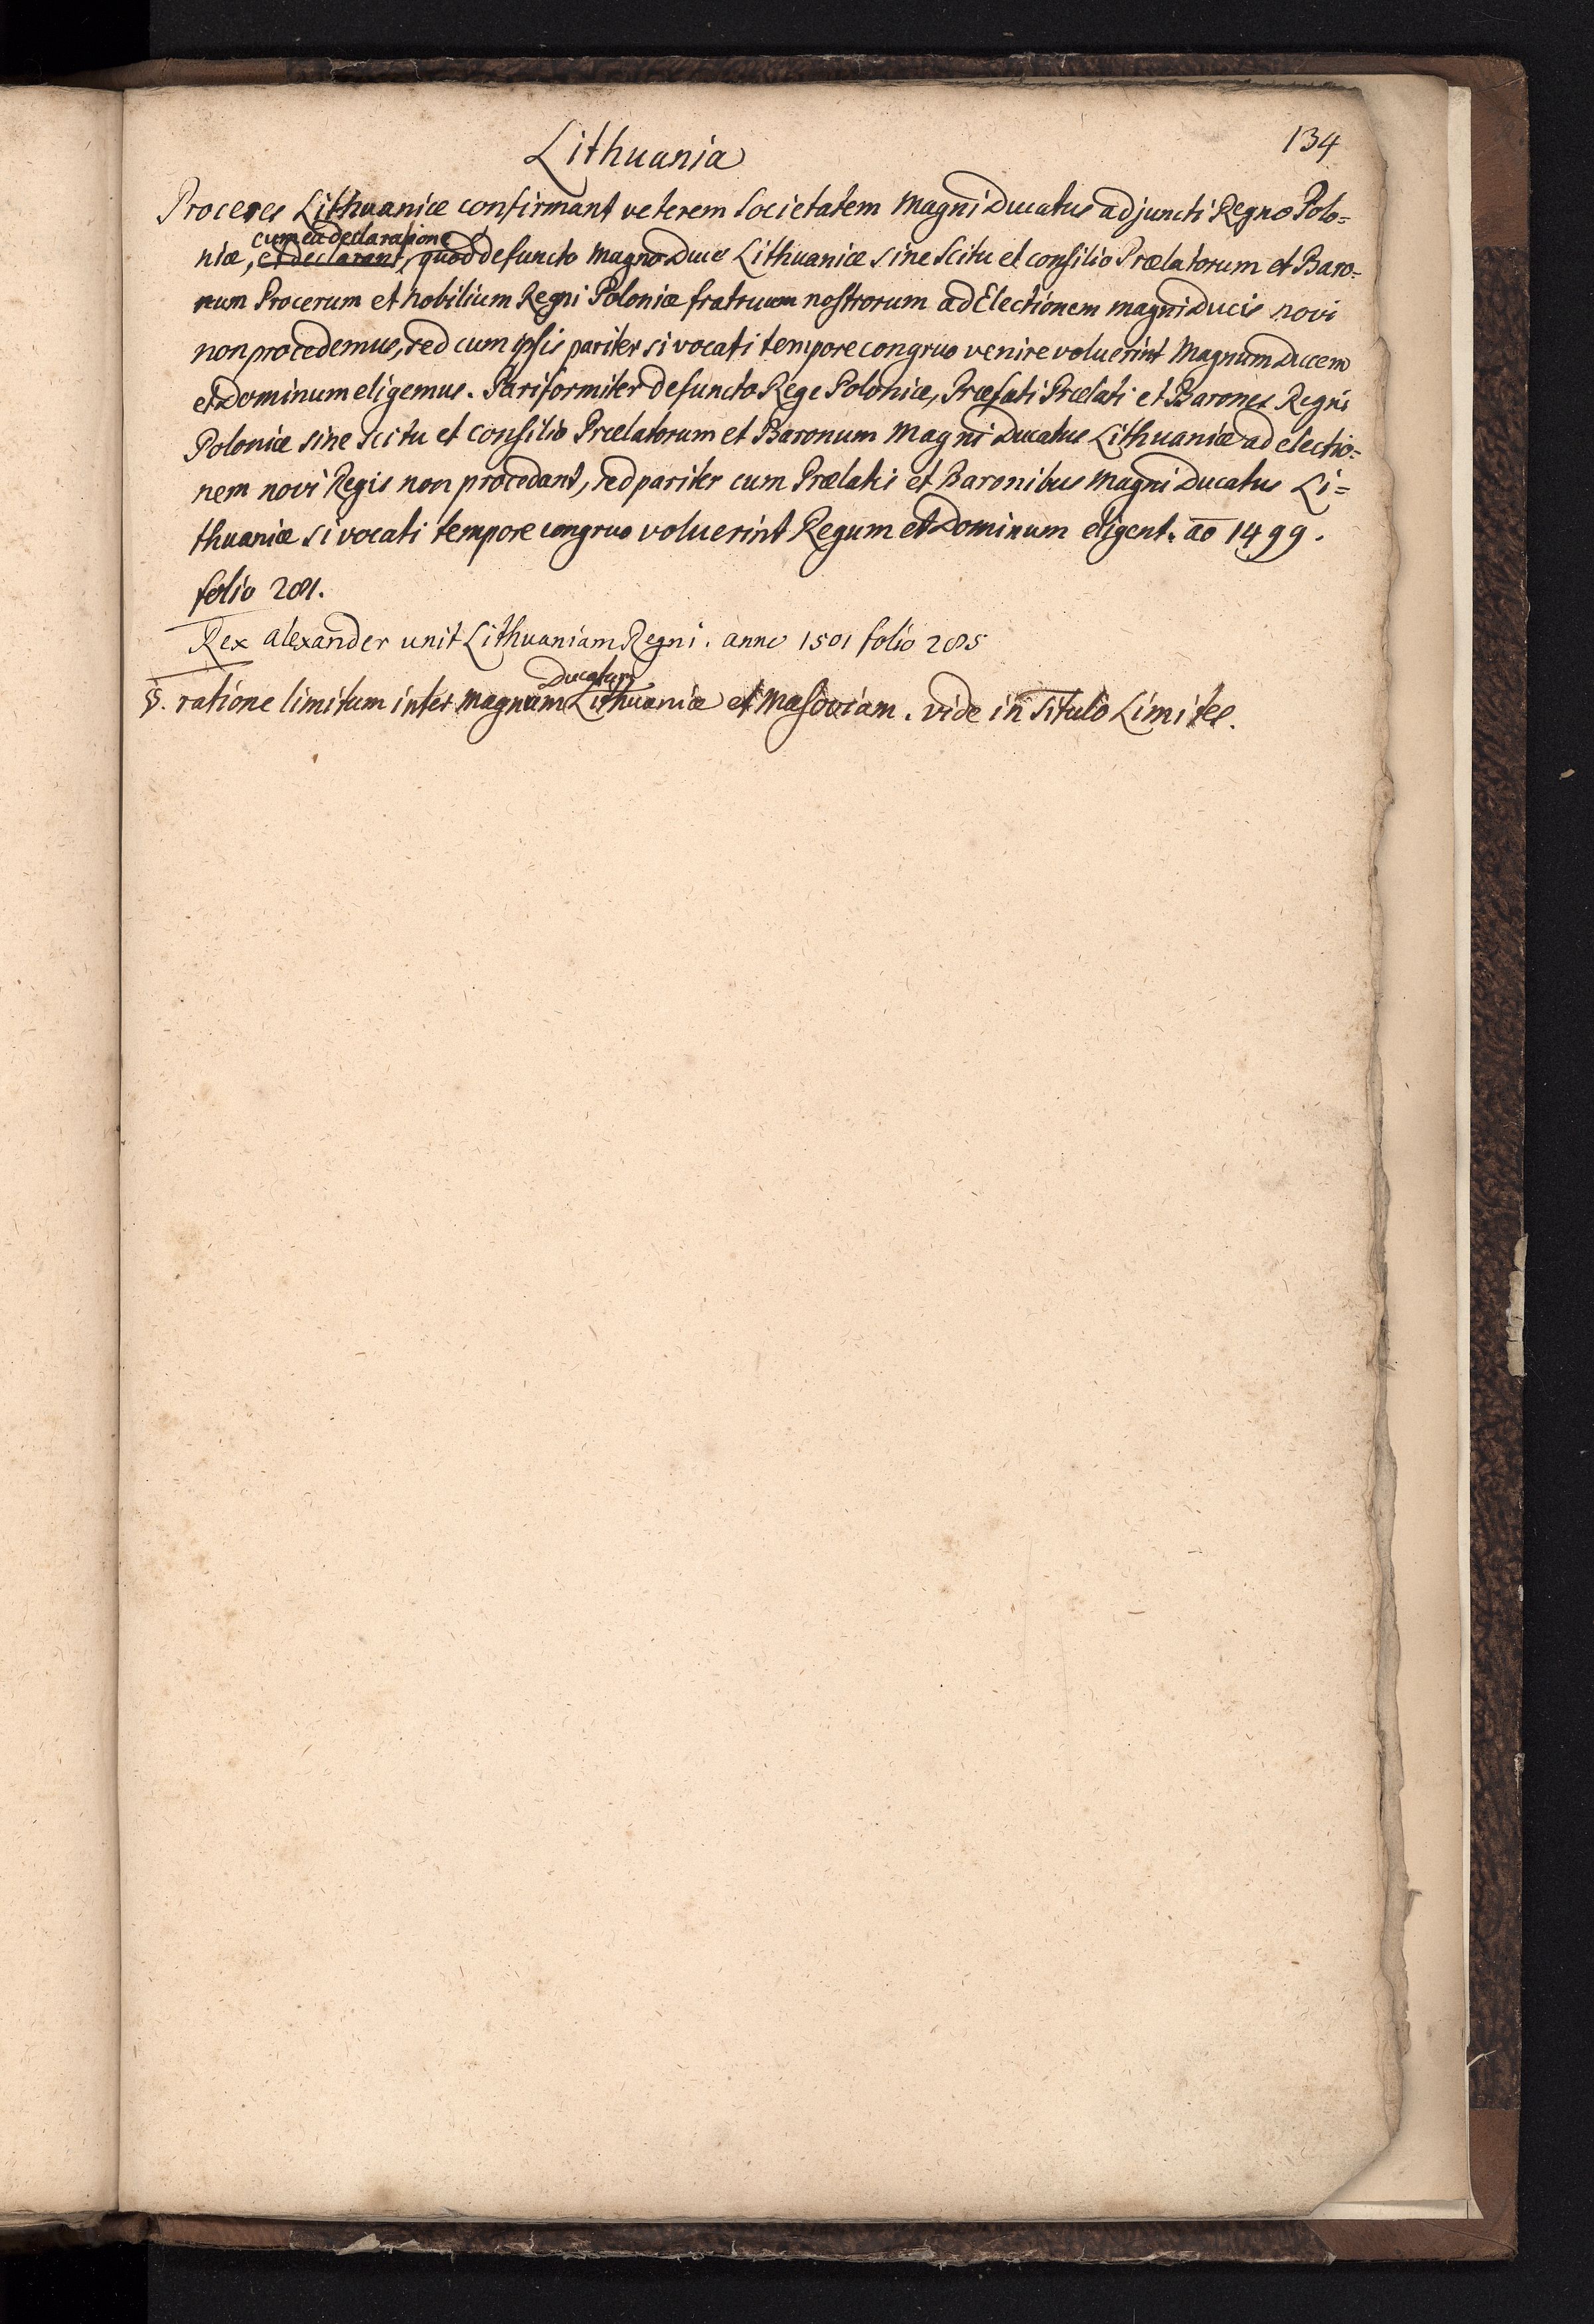 134
Lithuania
Proceres Lithuaniæ confirmant veterem Societatem Magni Ducatus adjuncti Regno Polo=
cum ea declaratione
niæ, et declarant, quod defuncto Magno Duce Lithuaniæ sine scitu et consilio Prælatorum et Baro=
num Procerum et nobilium Regni Poloniæ fratruum nostrorum ad Electionem magni Ducis novi
non procedemus, sed cum ipsis pariter si vocati tempore congruo venire voluerint Magnum Ducem
et Dominum eligemus. Pariformiter defuncto Rege Poloniæ, Præfati Prælati et Barones Regni
Poloniæ sine scitu et consilio Prælatorum et Baronum Magni Ducatus Lithuaniæ ad electio=
nem novi Regis non procedant, sed pariter cum Prælatis et Baronibus Magni Ducatus Li=
thuaniæ si vocati tempore congruo voluerint Regum et Dominum eligent. ao 1499.
folio 281.
Rex Alexander unit Lithuaniam Regni. anno 1501 folio 285
Ducatum
ratione limitum inter Magnum Lithuaniæ et Masoviam. vide in Titulo Limites.